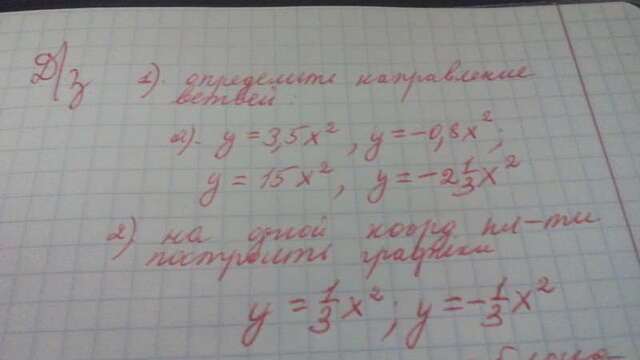 Д/з 1). определите направление
ветвей:
а). y = 3,5x², y = -0,8x²;
y = 15x², y = -2 1/3 x²
2) на одной коорд пл-ти
построить графики
y = 1/3 x²; y = -1/3 x²